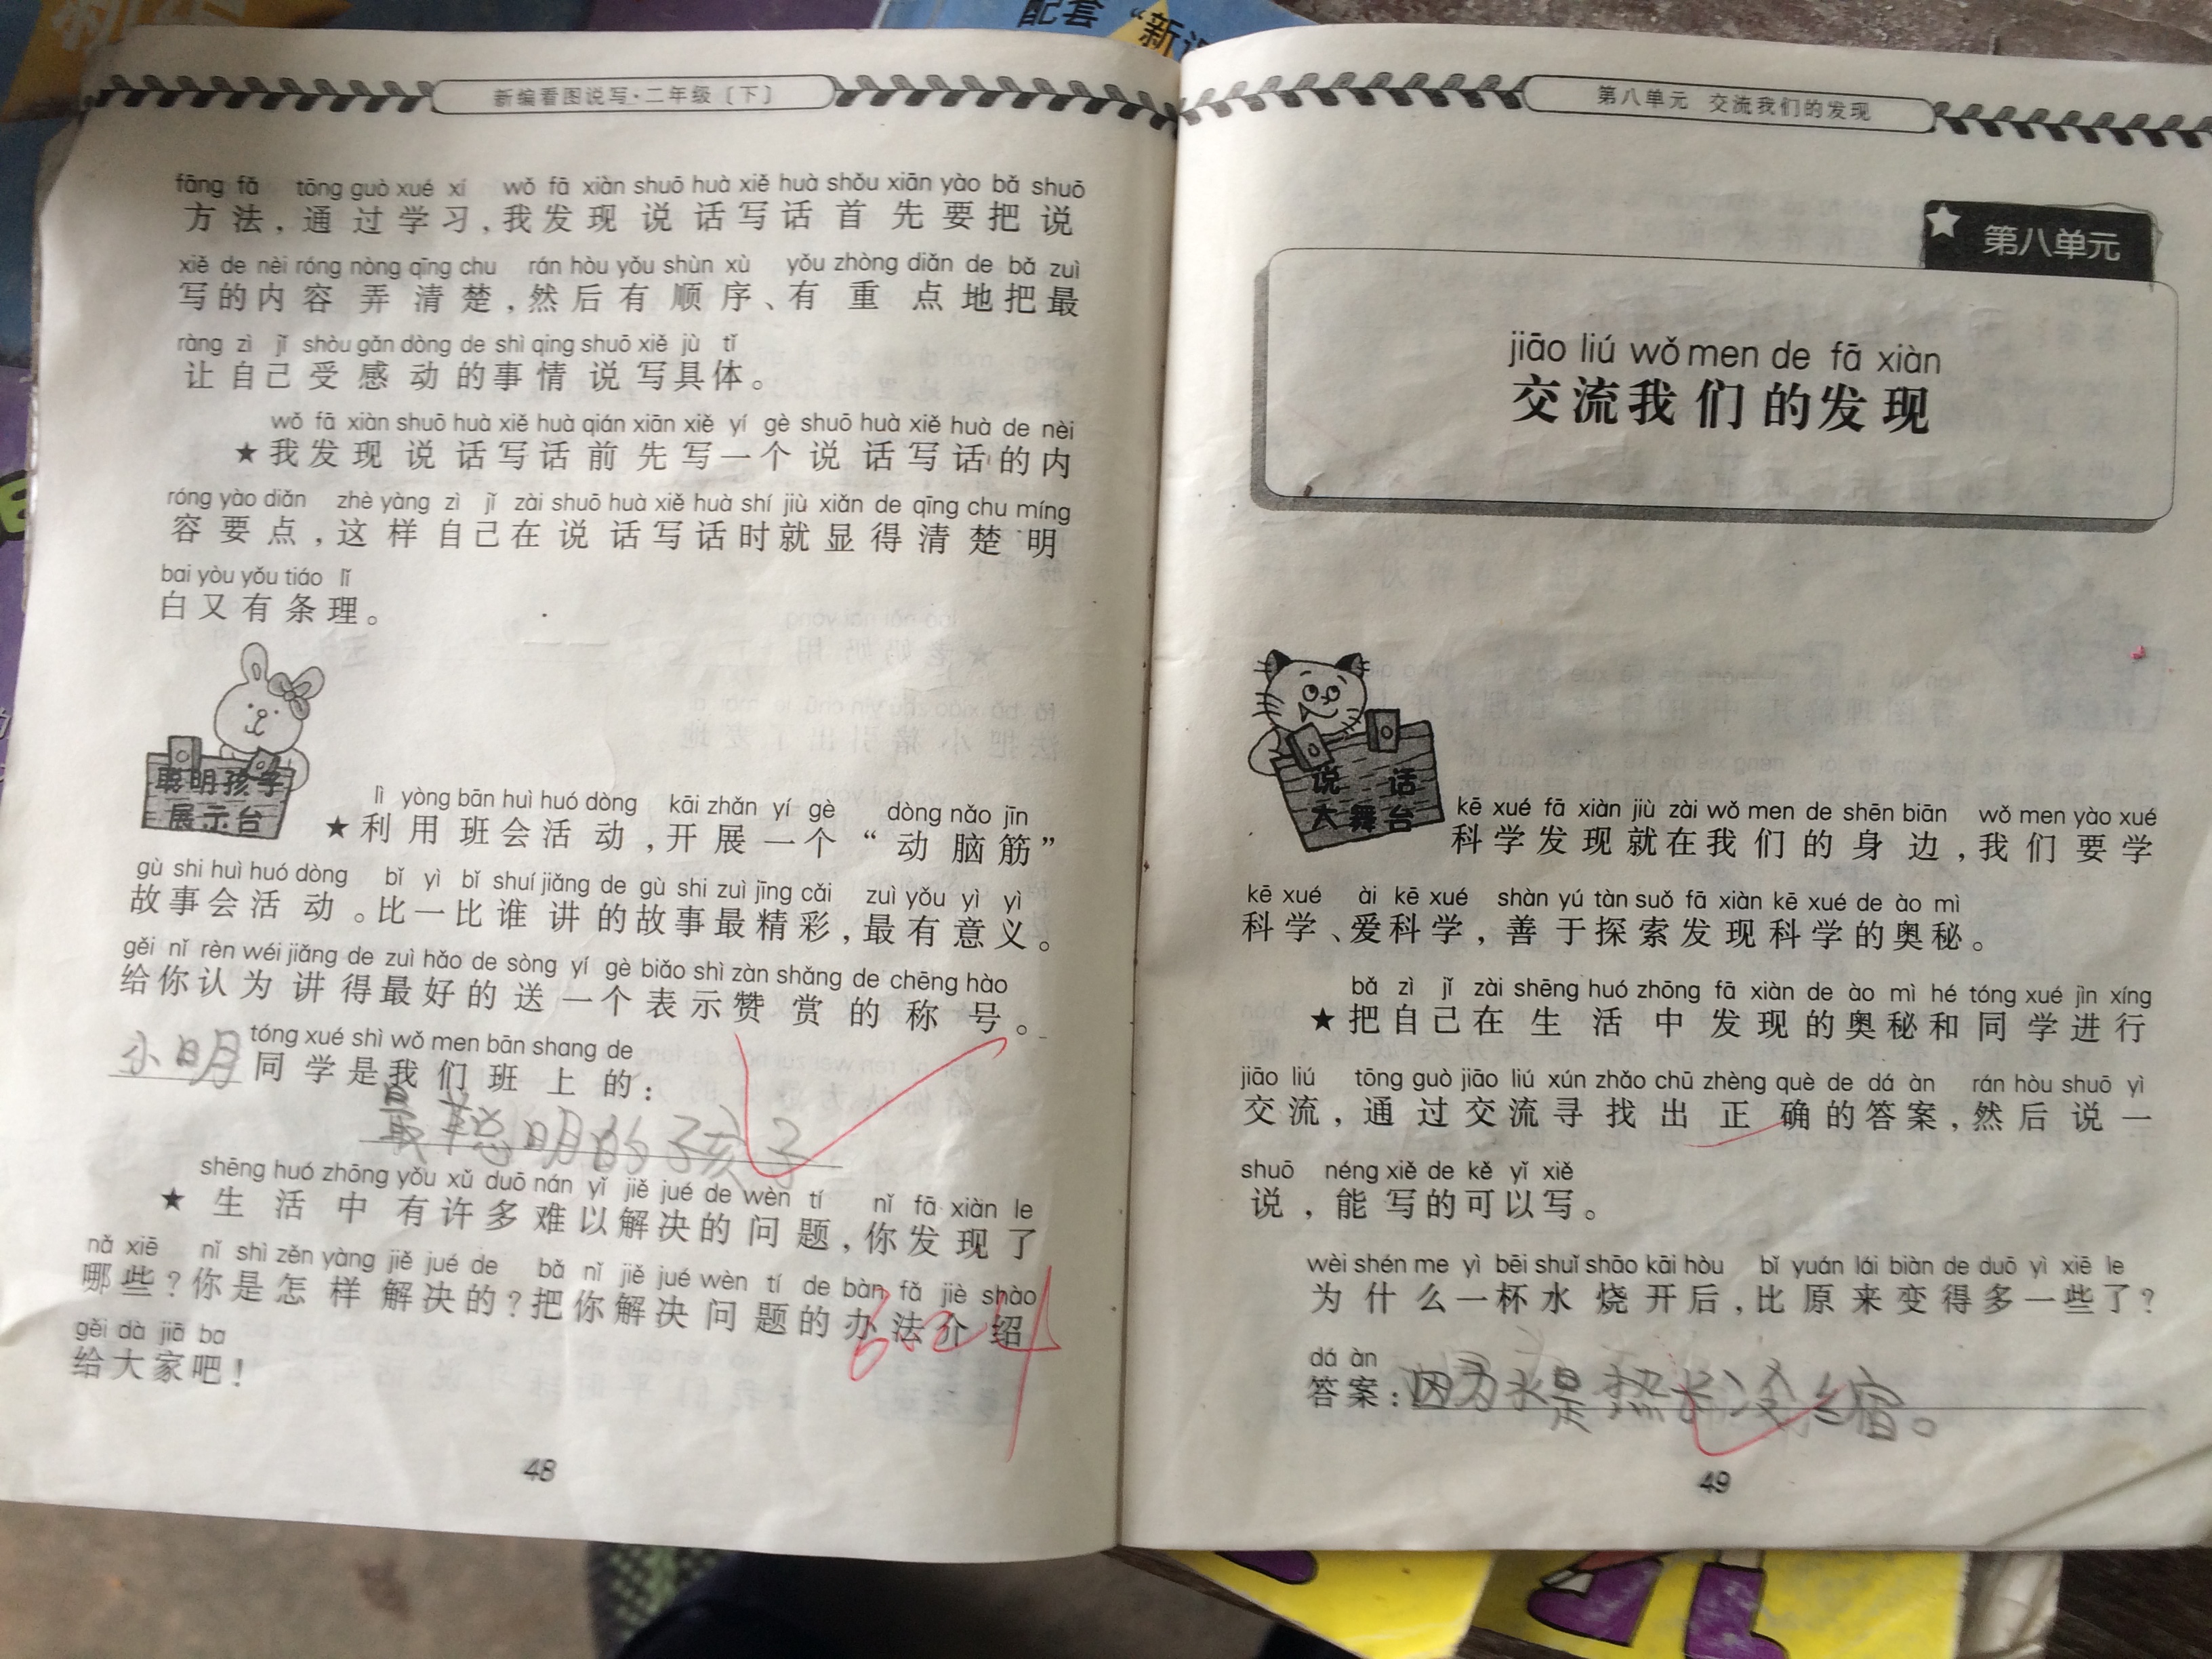 配套“新
新编看图说写·二年级〔下〕
fāng fǎ tōng guò xué xí wǒ fā xiàn shuō huà xiě huà shǒu xiān yào bǎ shuō
方法，通过学习，我发现说话写话首先要把说
xiě de nèi róng nòng qīng chu rán hòu yǒu shùn xù yǒu zhòng diǎn de bǎ zuì
写的内容弄清楚，然后有顺序、有重点地把最
ràng zì jǐ shòu gǎn dòng de shì qing shuō xiě jù tǐ
让自己受感动的事情说写具体。
wǒ fā xiàn shuō huà xiě huà qián xiān xiě yí gè shuō huà xiě huà de nèi
★我发现说话写话前先写一个说话写话的内
róng yào diǎn zhè yàng zì jǐ zài shuō huà xiě huà shí jiù xiǎn de qīng chu míng
容要点，这样自己在说话写话时就显得清楚明
bai yòu yǒu tiáo lǐ
白又有条理。
聪明孩子
展示台
lì yòng bān huì huó dòng kāi zhǎn yí gè dòng nǎo jīn
★利用班会活动，开展一个“动脑筋”
gù shi huì huó dòng bǐ yì bǐ shuí jiǎng de gù shi zuì jīng cǎi zuì yǒu yì yì
故事会活动。比一比谁讲的故事最精彩，最有意义。
gěi nǐ rèn wéi jiǎng de zuì hǎo de sòng yí gè biǎo shì zàn shǎng de chēng hào
给你认为讲得最好的送一个表示赞赏的称号。
tóng xué shì wǒ men bān shang de
小明同学是我们班上的：
最聪明的孩子
shēng huó zhōng yǒu xǔ duō nán yǐ jiě jué de wèn tí nǐ fā xiàn le
★生活中有许多难以解决的问题，你发现了
nǎ xiē nǐ shì zěn yàng jiě jué de bǎ nǐ jiě jué wèn tí de bàn fǎ jiè shào
哪些？你是怎样解决的？把你解决问题的办法介绍
gěi dà jiā ba
给大家吧！
48
第八单元 交流我们的发现
第八单元
jiāo liú wǒ men de fā xiàn
交流我们的发现
说话
大舞台
kē xué fā xiàn jiù zài wǒ men de shēn biān wǒ men yào xué
科学发现就在我们的身边，我们要学
kē xué ài kē xué shàn yú tàn suǒ fā xiàn kē xué de ào mì
科学、爱科学，善于探索发现科学的奥秘。
bǎ zì jǐ zài shēng huó zhōng fā xiàn de ào mì hé tóng xué jìn xíng
★把自己在生活中发现的奥秘和同学进行
jiāo liú tōng guò jiāo liú xún zhǎo chū zhèng què de dá àn rán hòu shuō yì
交流，通过交流寻找出正确的答案，然后说一
shuō néng xiě de kě yǐ xiě
说，能写的可以写。
wèi shén me yì bēi shuǐ shāo kāi hòu bǐ yuán lái biàn de duō yì xiē le
为什么一杯水烧开后，比原来变得多一些了？
dá àn
答案：因为水是热长冷缩。
49